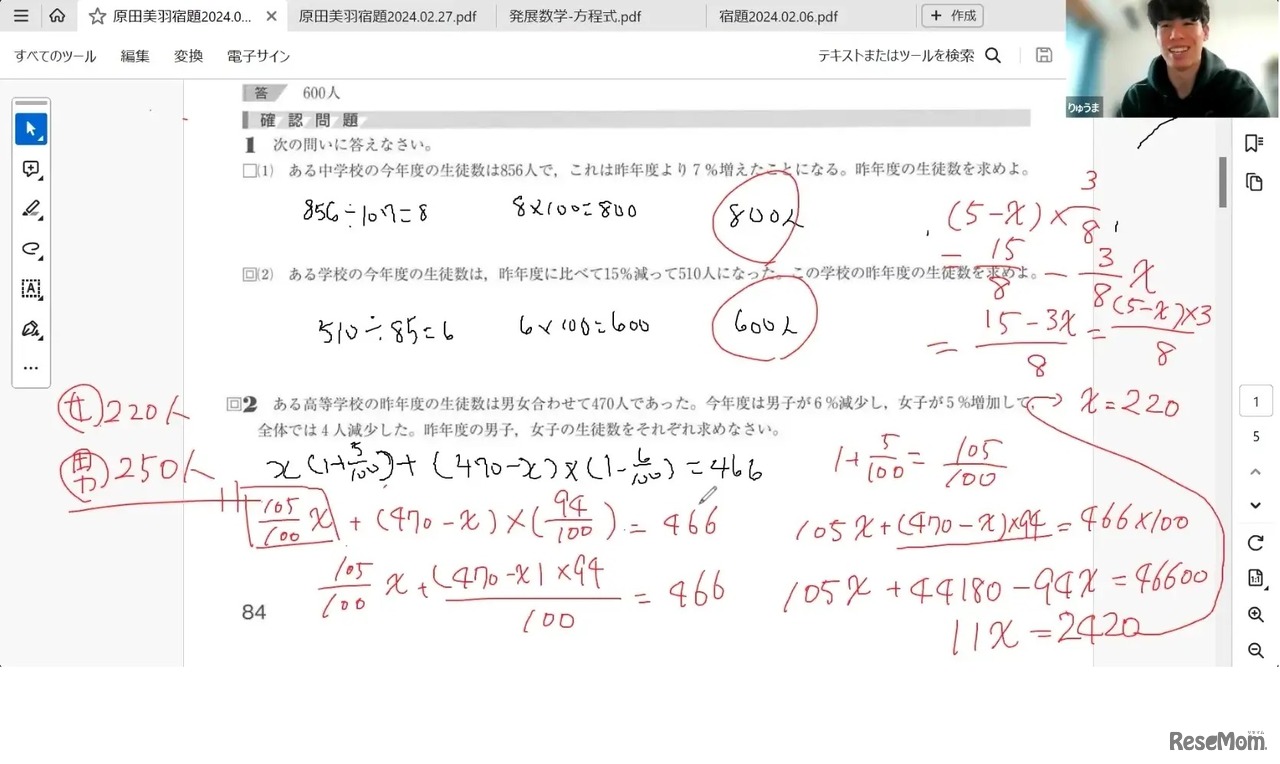 原田美羽宿題2024.0...
原田美羽宿題2024.02.27.pdf
発展数学-方程式.pdf
宿題2024.02.06.pdf
+ 作成
すべてのツール
編集
変換
電子サイン
テキストまたはツールを検索
りゅうま
答 600人
確認問題
1 次の問いに答えなさい。
□(1) ある中学校の今年度の生徒数は856人で，これは昨年度より7％増えたことになる。昨年度の生徒数を求めよ。
856÷107=8
8×100=800
800人
□(2) ある学校の今年度の生徒数は，昨年度に比べて15％減って510人になった。この学校の昨年度の生徒数を求めよ。
510÷85=6
6×100=600
600人
(5-x)×3/8
=15/8-3/8x
=(15-3x)/8=(5-x)×3/8
□2 ある高等学校の昨年度の生徒数は男女合わせて470人であった。今年度は男子が6％減少し，女子が5％増加して，
全体では4人減少した。昨年度の男子，女子の生徒数をそれぞれ求めなさい。
女 220人
男 250人
x(1+5/100)+(470-x)×(1-6/100)=466
105/100x+(470-x)×(94/100)=466
105/100x+(470-x)×94/100=466
x=220
1+5/100=105/100
105x+(470-x)×94=466×100
105x+44180-94x=46600
11x=2420
84
1
5
ReseMom.